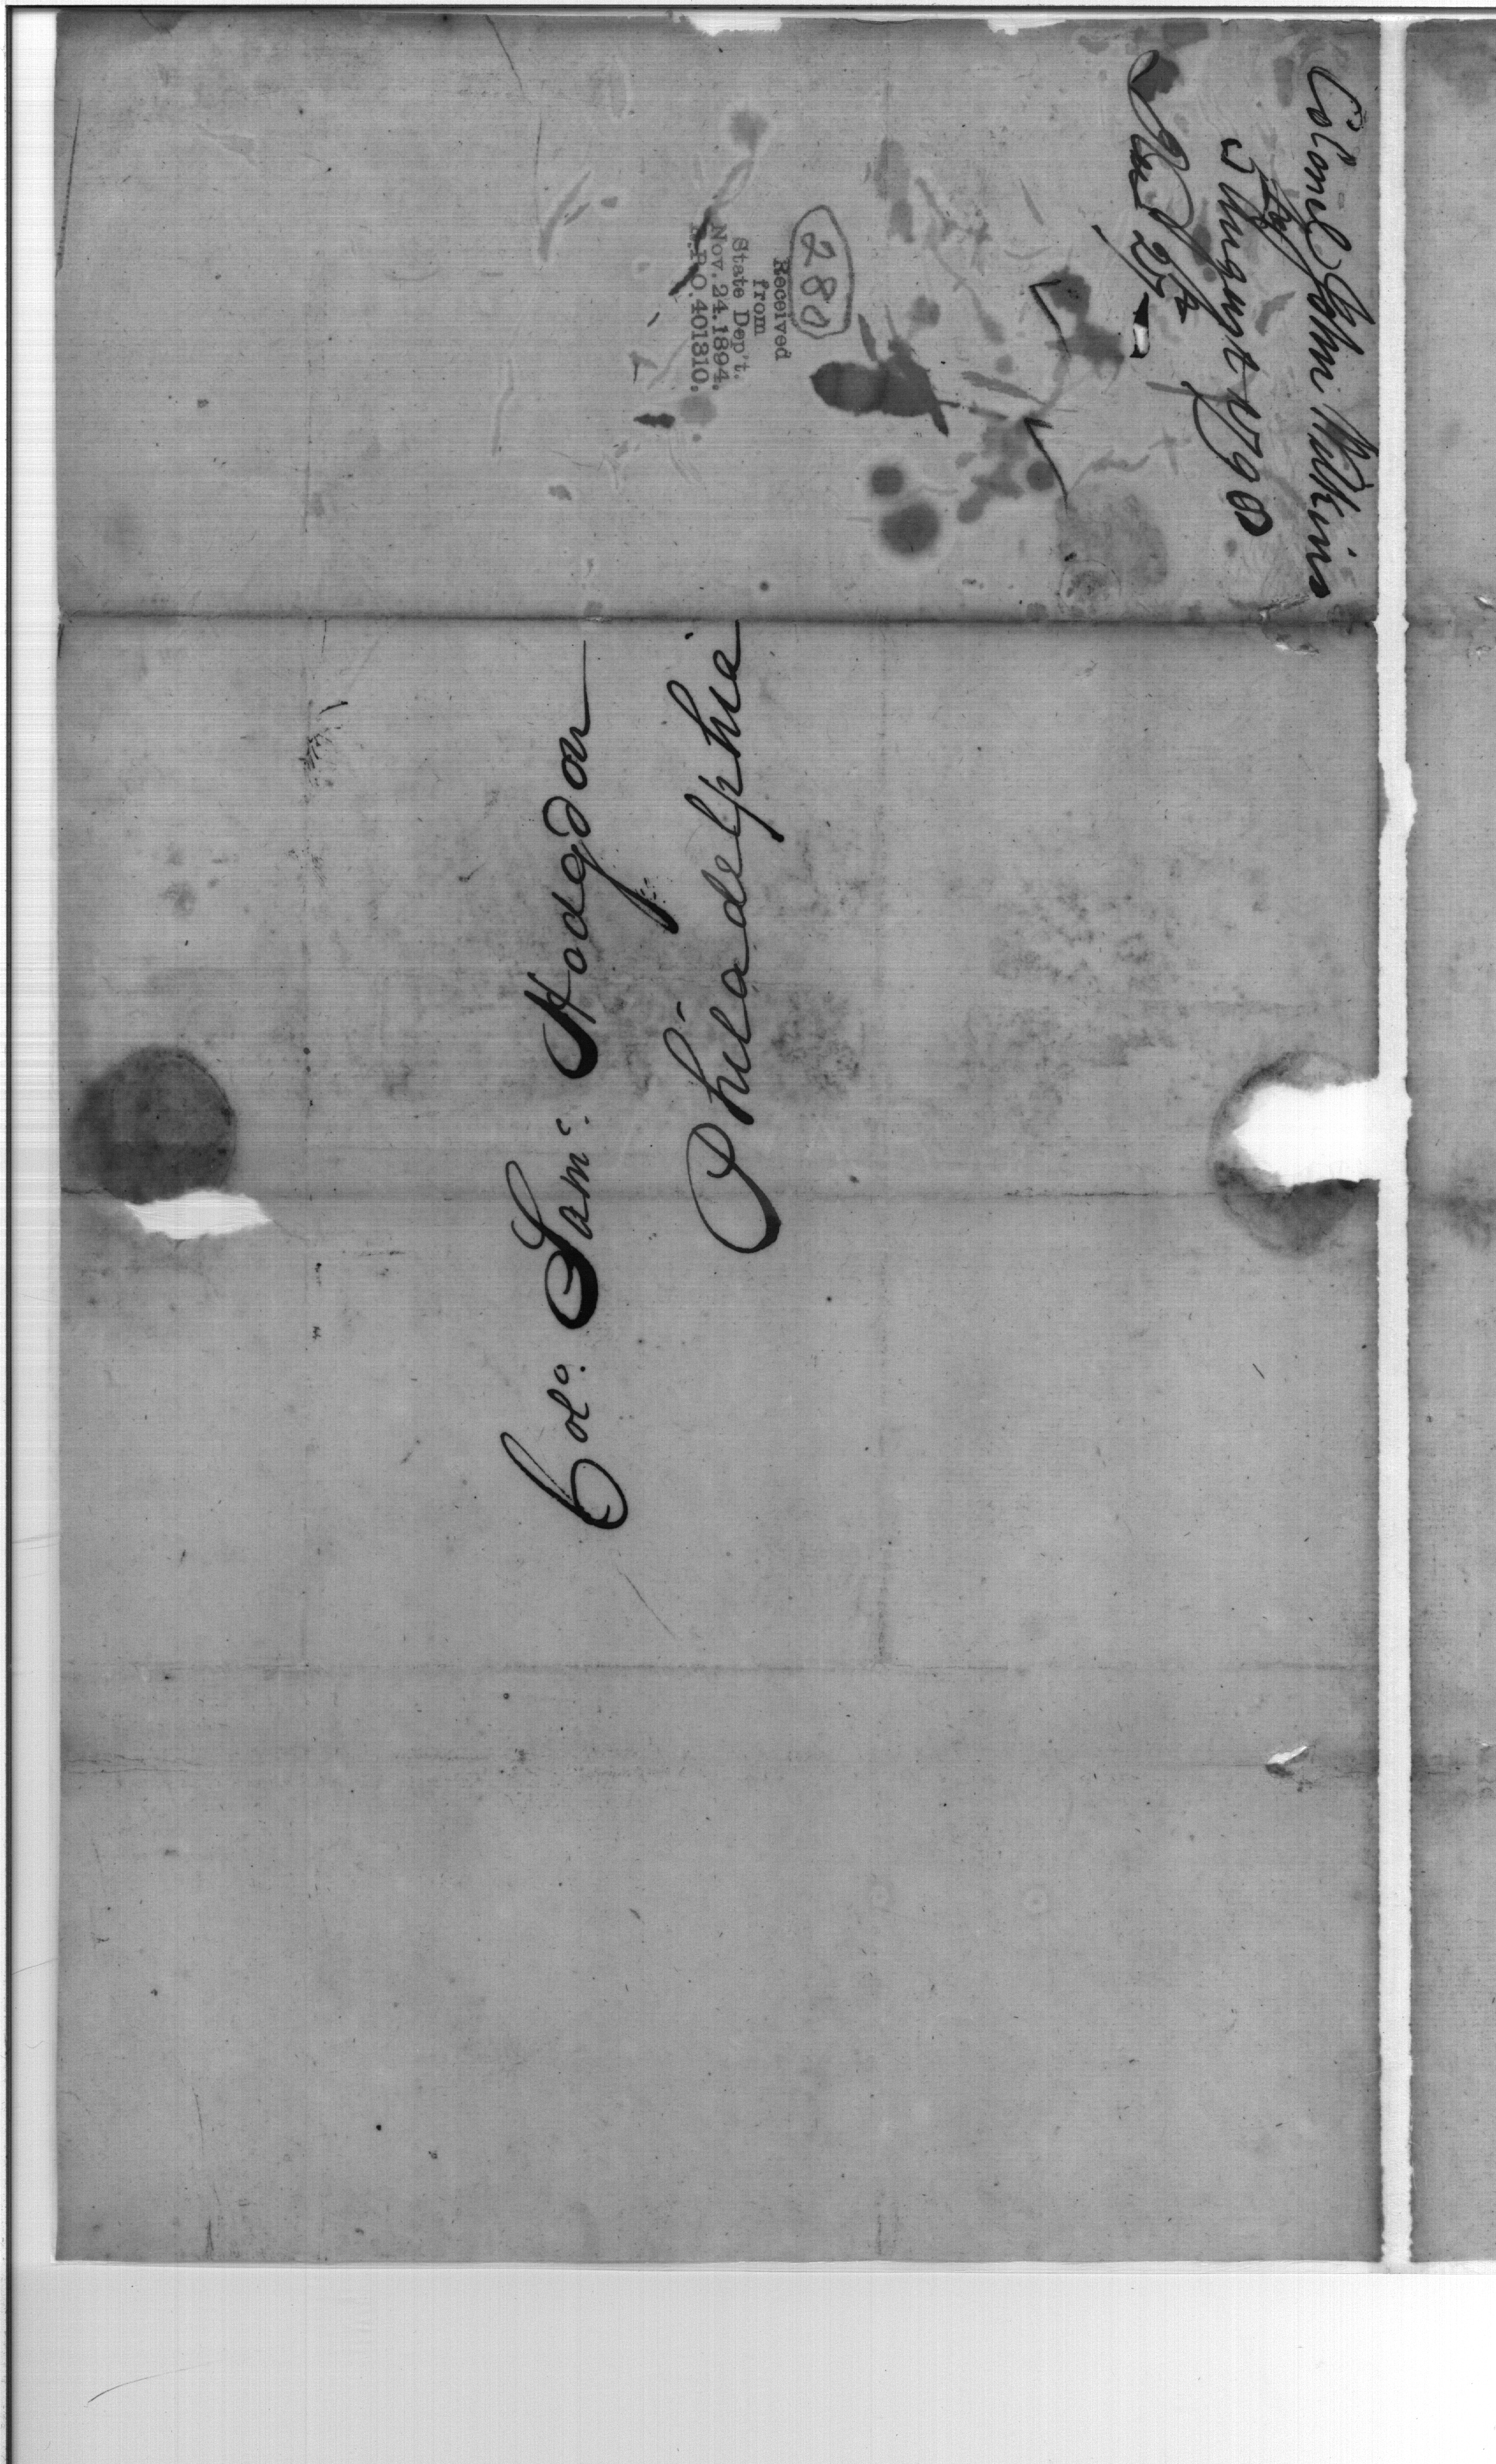 Colonel John Wilkins
5th August 1790
Recd 25
280
Received
from
State Dep't.
Nov. 24. 1894.
R.P.O. 401310.
Colo. Saml. Hodgdon
Philadelphia